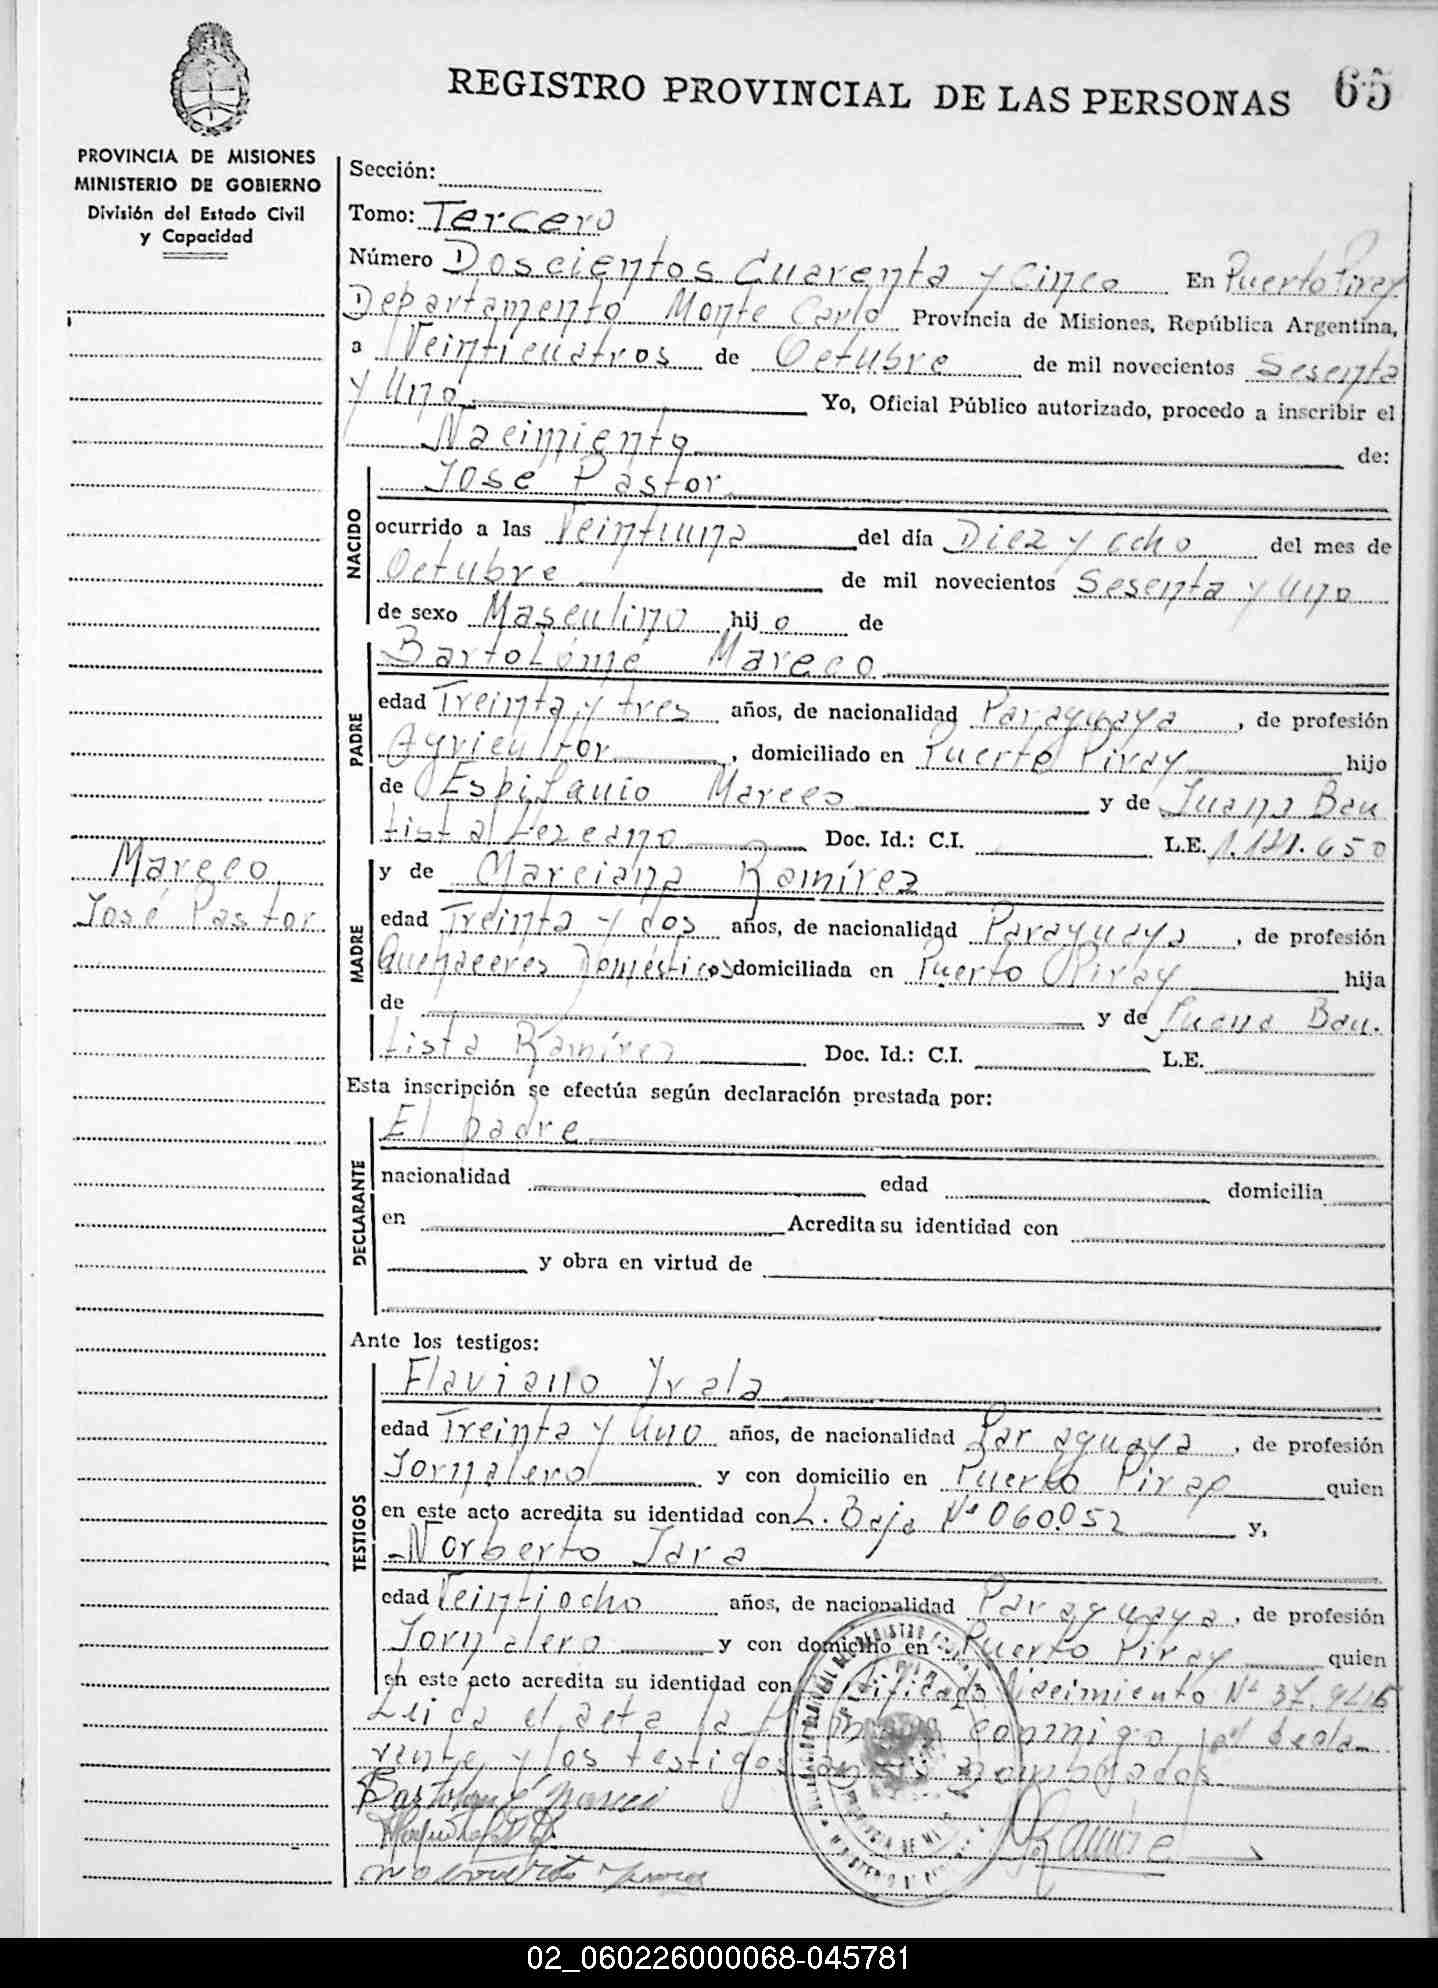 REGISTRO PROVINCIAL DE LAS PERSONAS 65
PROVINCIA DE MISIONES
MINISTERIO DE GOBIERNO
División del Estado Civil
y Capacidad
Mareco
José Pastor
Sección:
Tomo: Tercero
Número Doscientos Cuarenta y Cinco En Puerto Piray
Departamento Monte Carlo Provincia de Misiones, República Argentina,
a Veinticuatros de Octubre de mil novecientos Sesenta
y Uno Yo, Oficial Público autorizado, procedo a inscribir el
Nacimiento de:
NACIDO
José Pastor
ocurrido a las Veintiuna del día Diez y ocho del mes de
Octubre de mil novecientos Sesenta y Uno
de sexo Masculino hij o de
PADRE
Bartolomé Mareco
edad Treinta y tres años, de nacionalidad Paraguaya, de profesión
Agricultor, domiciliado en Puerto Piray hijo
de Espifanio Mareco y de Juana Bau
tista Lezcano Doc. Id.: C.I. L.E.
MADRE
y de Marciana Ramírez
edad Treinta y dos años, de nacionalidad Paraguaya, de profesión
Quehaceres Domésticos domiciliada en Puerto Piray hija
de y de Juana Bau.
tista Ramírez Doc. Id.: C.I. L.E.
Esta inscripción se efectúa según declaración prestada por:
DECLARANTE
El padre
nacionalidad edad domicilia
en Acredita su identidad con
y obra en virtud de
Ante los testigos:
TESTIGOS
Flaviano Yrala
edad Treinta y Uno años, de nacionalidad Paraguaya, de profesión
Jornalero y con domicilio en Puerto Piray quien
en este acto acredita su identidad con L. Baja Nº 060.052 y,
Norberto Jara
edad Veintiocho años, de nacionalidad Paraguaya, de profesión
Jornalero y con domicilio en Puerto Piray quien
en este acto acredita su identidad con Certificado Nacimiento Nº
Leida el acta la conmigo, el decla
rante y los testigos nombrados
Bartolomé Mareco
02_060226000068-045781